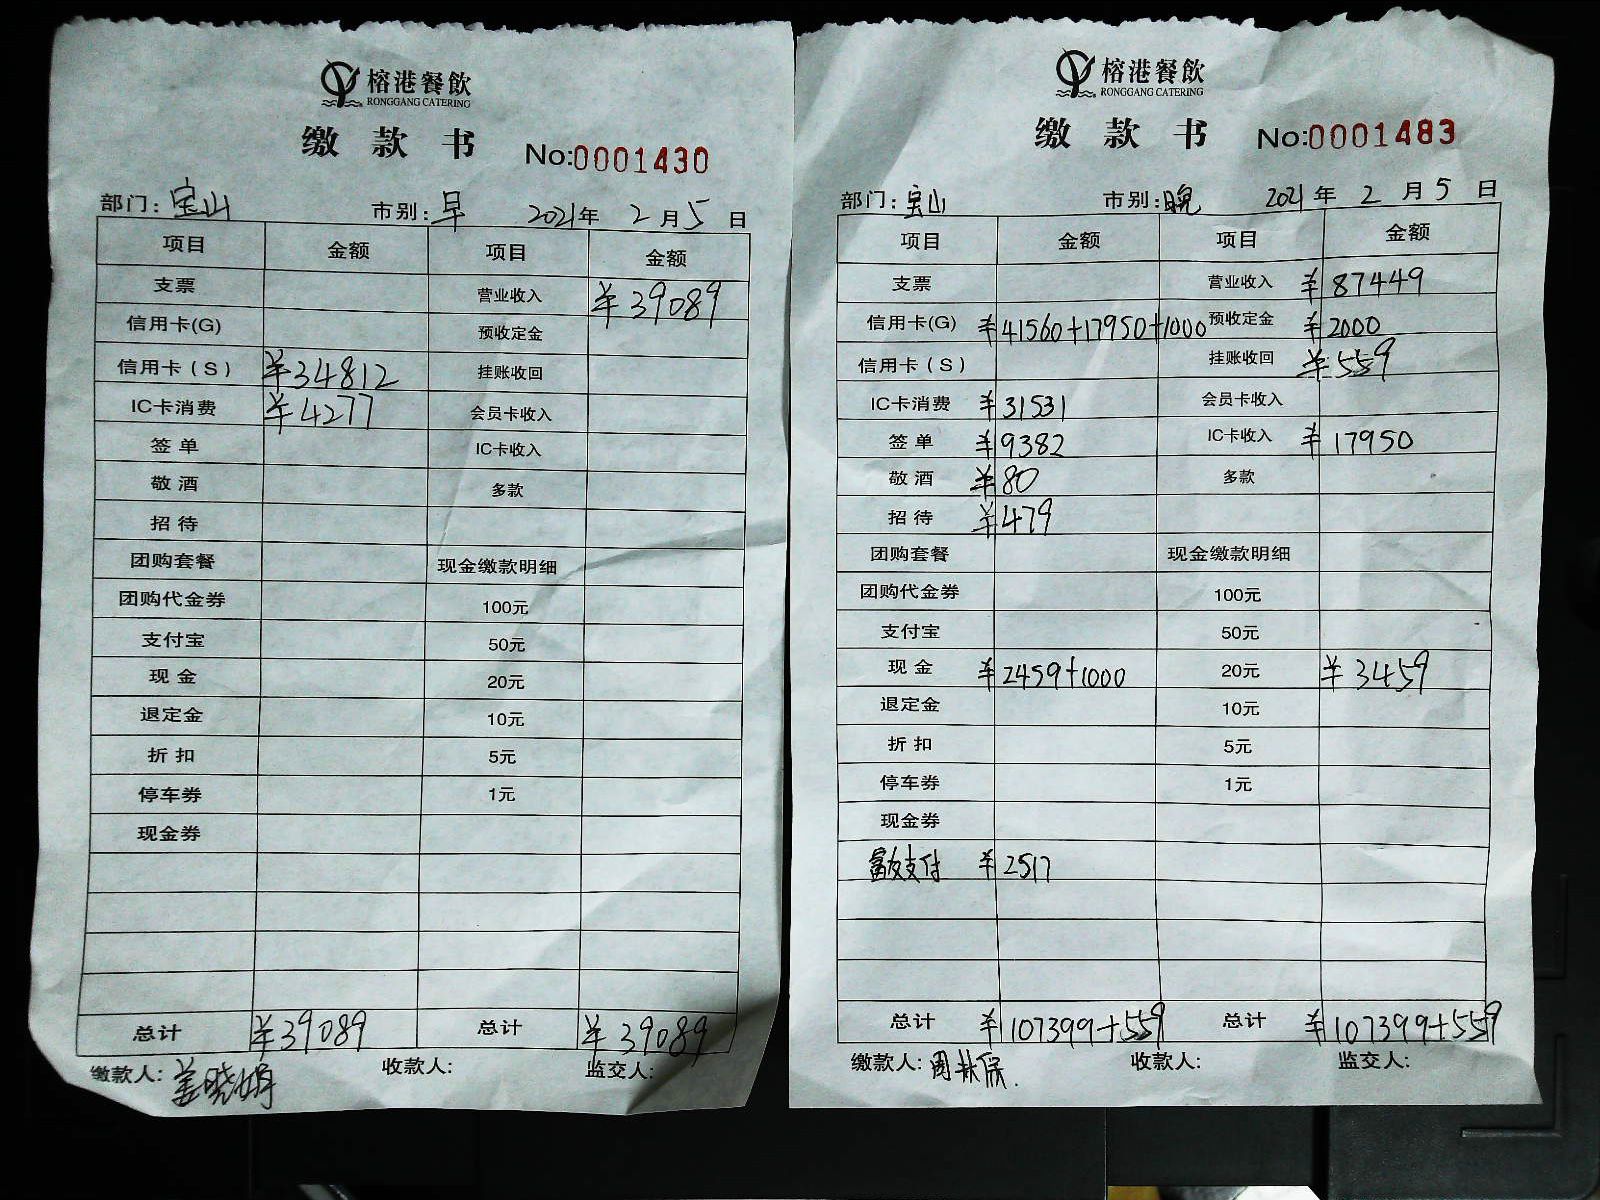 榕港餐飲
RONGGANG CATERING
缴款书 No:0001430
部门: 宝山 市别: 早 2021年 2月5日
项目 金额 项目 金额
支票 营业收入 ¥39089
信用卡(G) 预收定金
信用卡(S) ¥34812 挂账收回
IC卡消费 ¥4277 会员卡收入
签单 IC卡收入
敬酒 多款
招待
团购套餐 现金缴款明细
团购代金券 100元
支付宝 50元
现金 20元
退定金 10元
折扣 5元
停车券 1元
现金券
总计 ¥39089 总计 ¥39089
缴款人: 姜晓娟 收款人: 监交人:
榕港餐飲
RONGGANG CATERING
缴款书 No:0001483
部门: 宝山 市别: 晚 2021年 2月5日
项目 金额 项目 金额
支票 营业收入 ¥87449
信用卡(G) ¥41560+17950+1000 预收定金 ¥2000
信用卡(S) 挂账收回 ¥559
IC卡消费 ¥31531 会员卡收入
签单 ¥9382 IC卡收入 ¥17950
敬酒 ¥80 多款
招待 ¥479
团购套餐 现金缴款明细
团购代金券 100元
支付宝 50元
现金 ¥2459+1000 20元 ¥3459
退定金 10元
折扣 5元
停车券 1元
现金券
富友支付 ¥2517
总计 ¥107399+559 总计 ¥107399+559
缴款人: 周 收款人: 监交人: